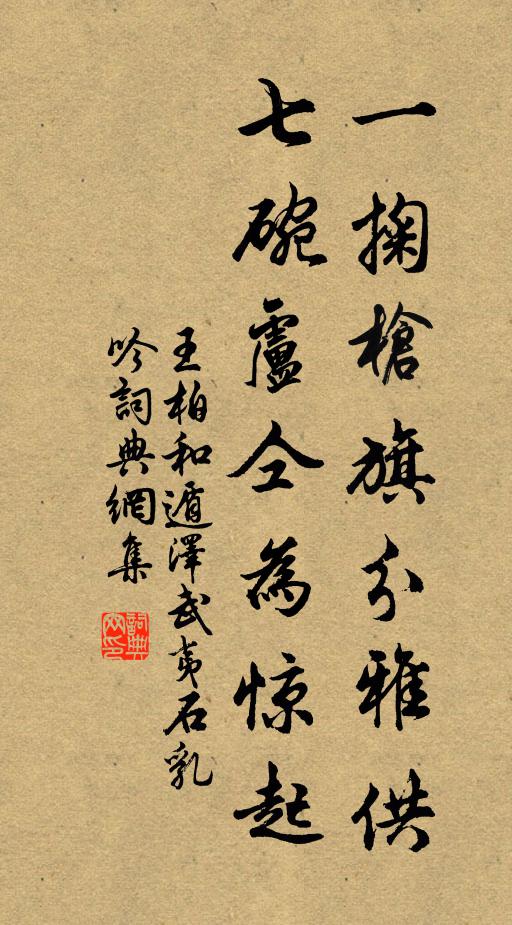 一掬槍旗分雅供
七碗盧仝為惊起
王柏和遁澤武夷石乳
吟詞典網集
詞典网印